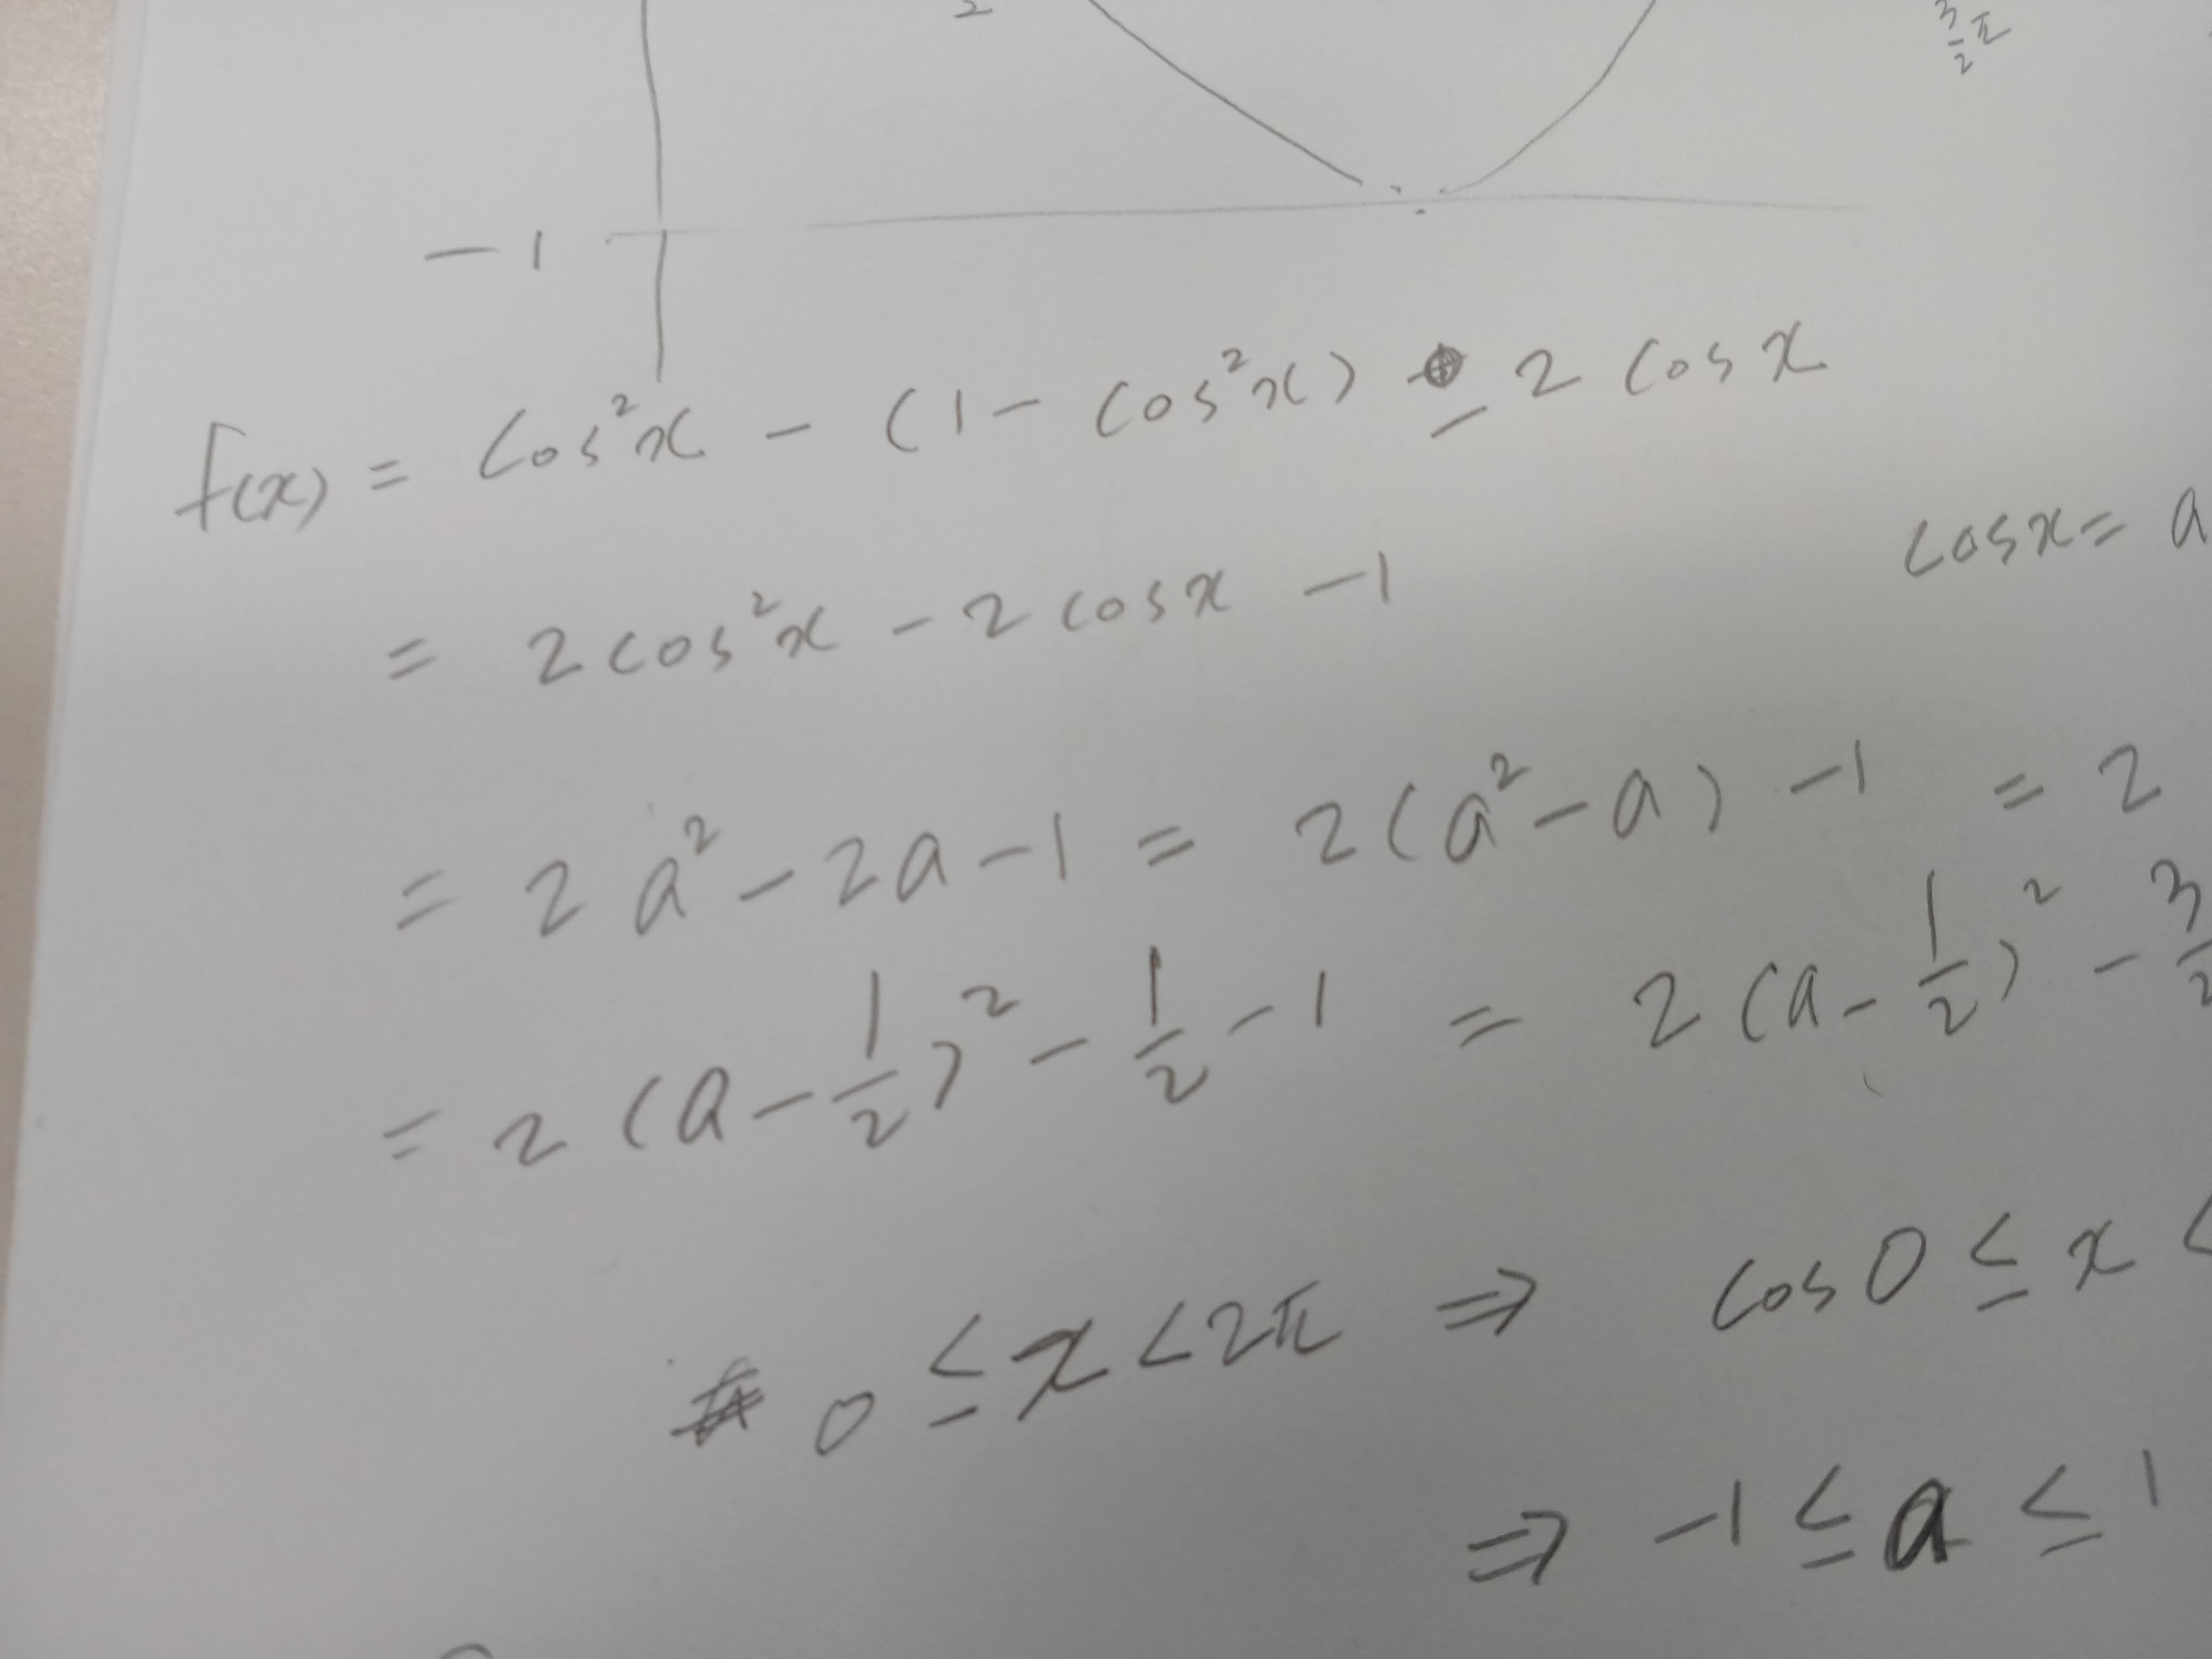 2
3/2 π
-1
f(x) = cos²x - (1 - cos²x) - 2 cos x
cos x = a
= 2cos²x - 2cos x - 1
= 2a² - 2a - 1 = 2(a² - a) - 1 = 2
= 2(a - 1/2)² - 1/2 - 1 = 2(a - 1/2)² - 3/2
0 ≤ x < 2π ⇒ cos 0 ≤ x <
⇒ -1 ≤ a ≤ 1